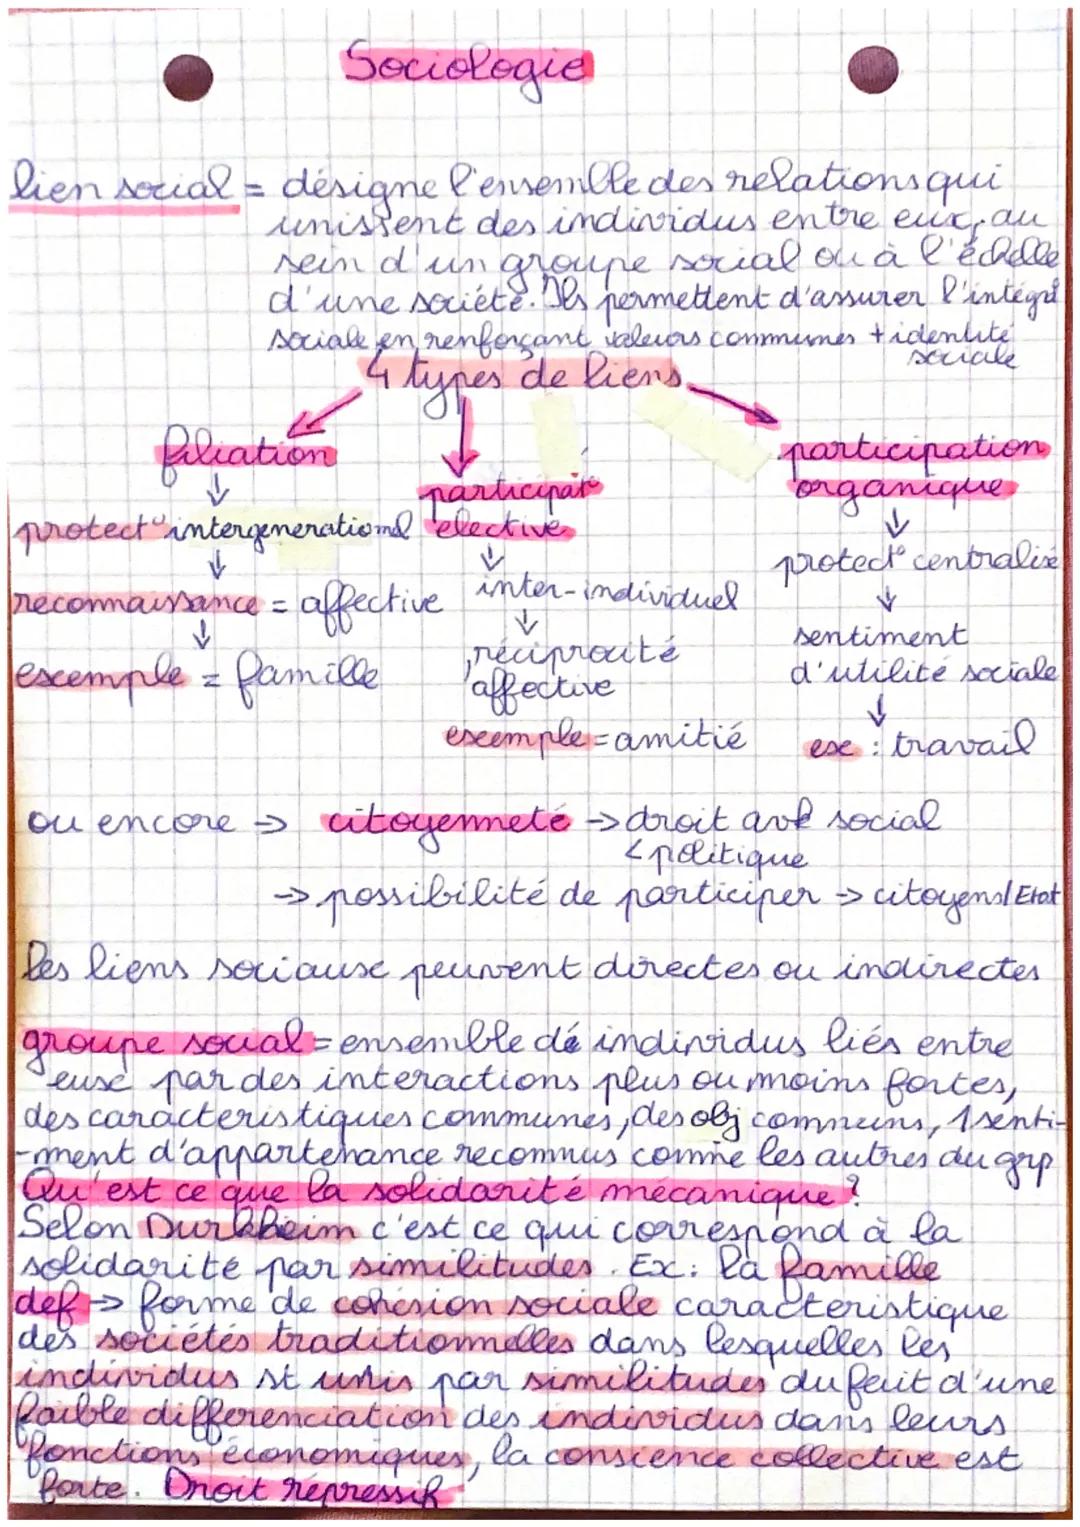 Sociologie
lien social = désigne l'ensemble des relations qui
unissent des individus entre eux, au
sein d'un groupe social ou à l'échelle
d'une société. Ils permettent d'assurer l'intégrᵒ
sociale en renforçant valeurs communes + identité
sociale
4 types de liens
filiation
↓
protectᵒ intergenerationnel
↓
reconnaissance = affective
↓
exemple = famille
participatᵒ
élective
↓
inter-individuel
↓
réciprocité
affective
exemple = amitié
participation
organique
↓
protectᵒ centralisé
↓
sentiment
d'utilité sociale
↓
ex : travail
ou encore → citoyenneté → droit social
< politique
→ possibilité de participer → citoyens/Etat
Les liens sociaux peuvent directes ou indirectes
groupe social = ensemble de individus liés entre
eux par des interactions plus ou moins fortes,
des caracteristiques communes, des obj communs, 1 senti-
-ment d'appartenance reconnus comme les autres du grp
Qu'est ce que la solidarité mécanique ?
Selon Durkheim c'est ce qui correspond à la
solidarité par similitudes. Ex : la famille
def → forme de cohésion sociale caractéristique
des sociétés traditionnelles dans lesquelles les
individus st unis par similitudes du fait d'une
faible differenciation des individus dans leurs
fonctions économiques, la conscience collective est
forte. Droit répressif